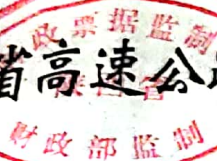 政票据监制
省高速公
财政部监制